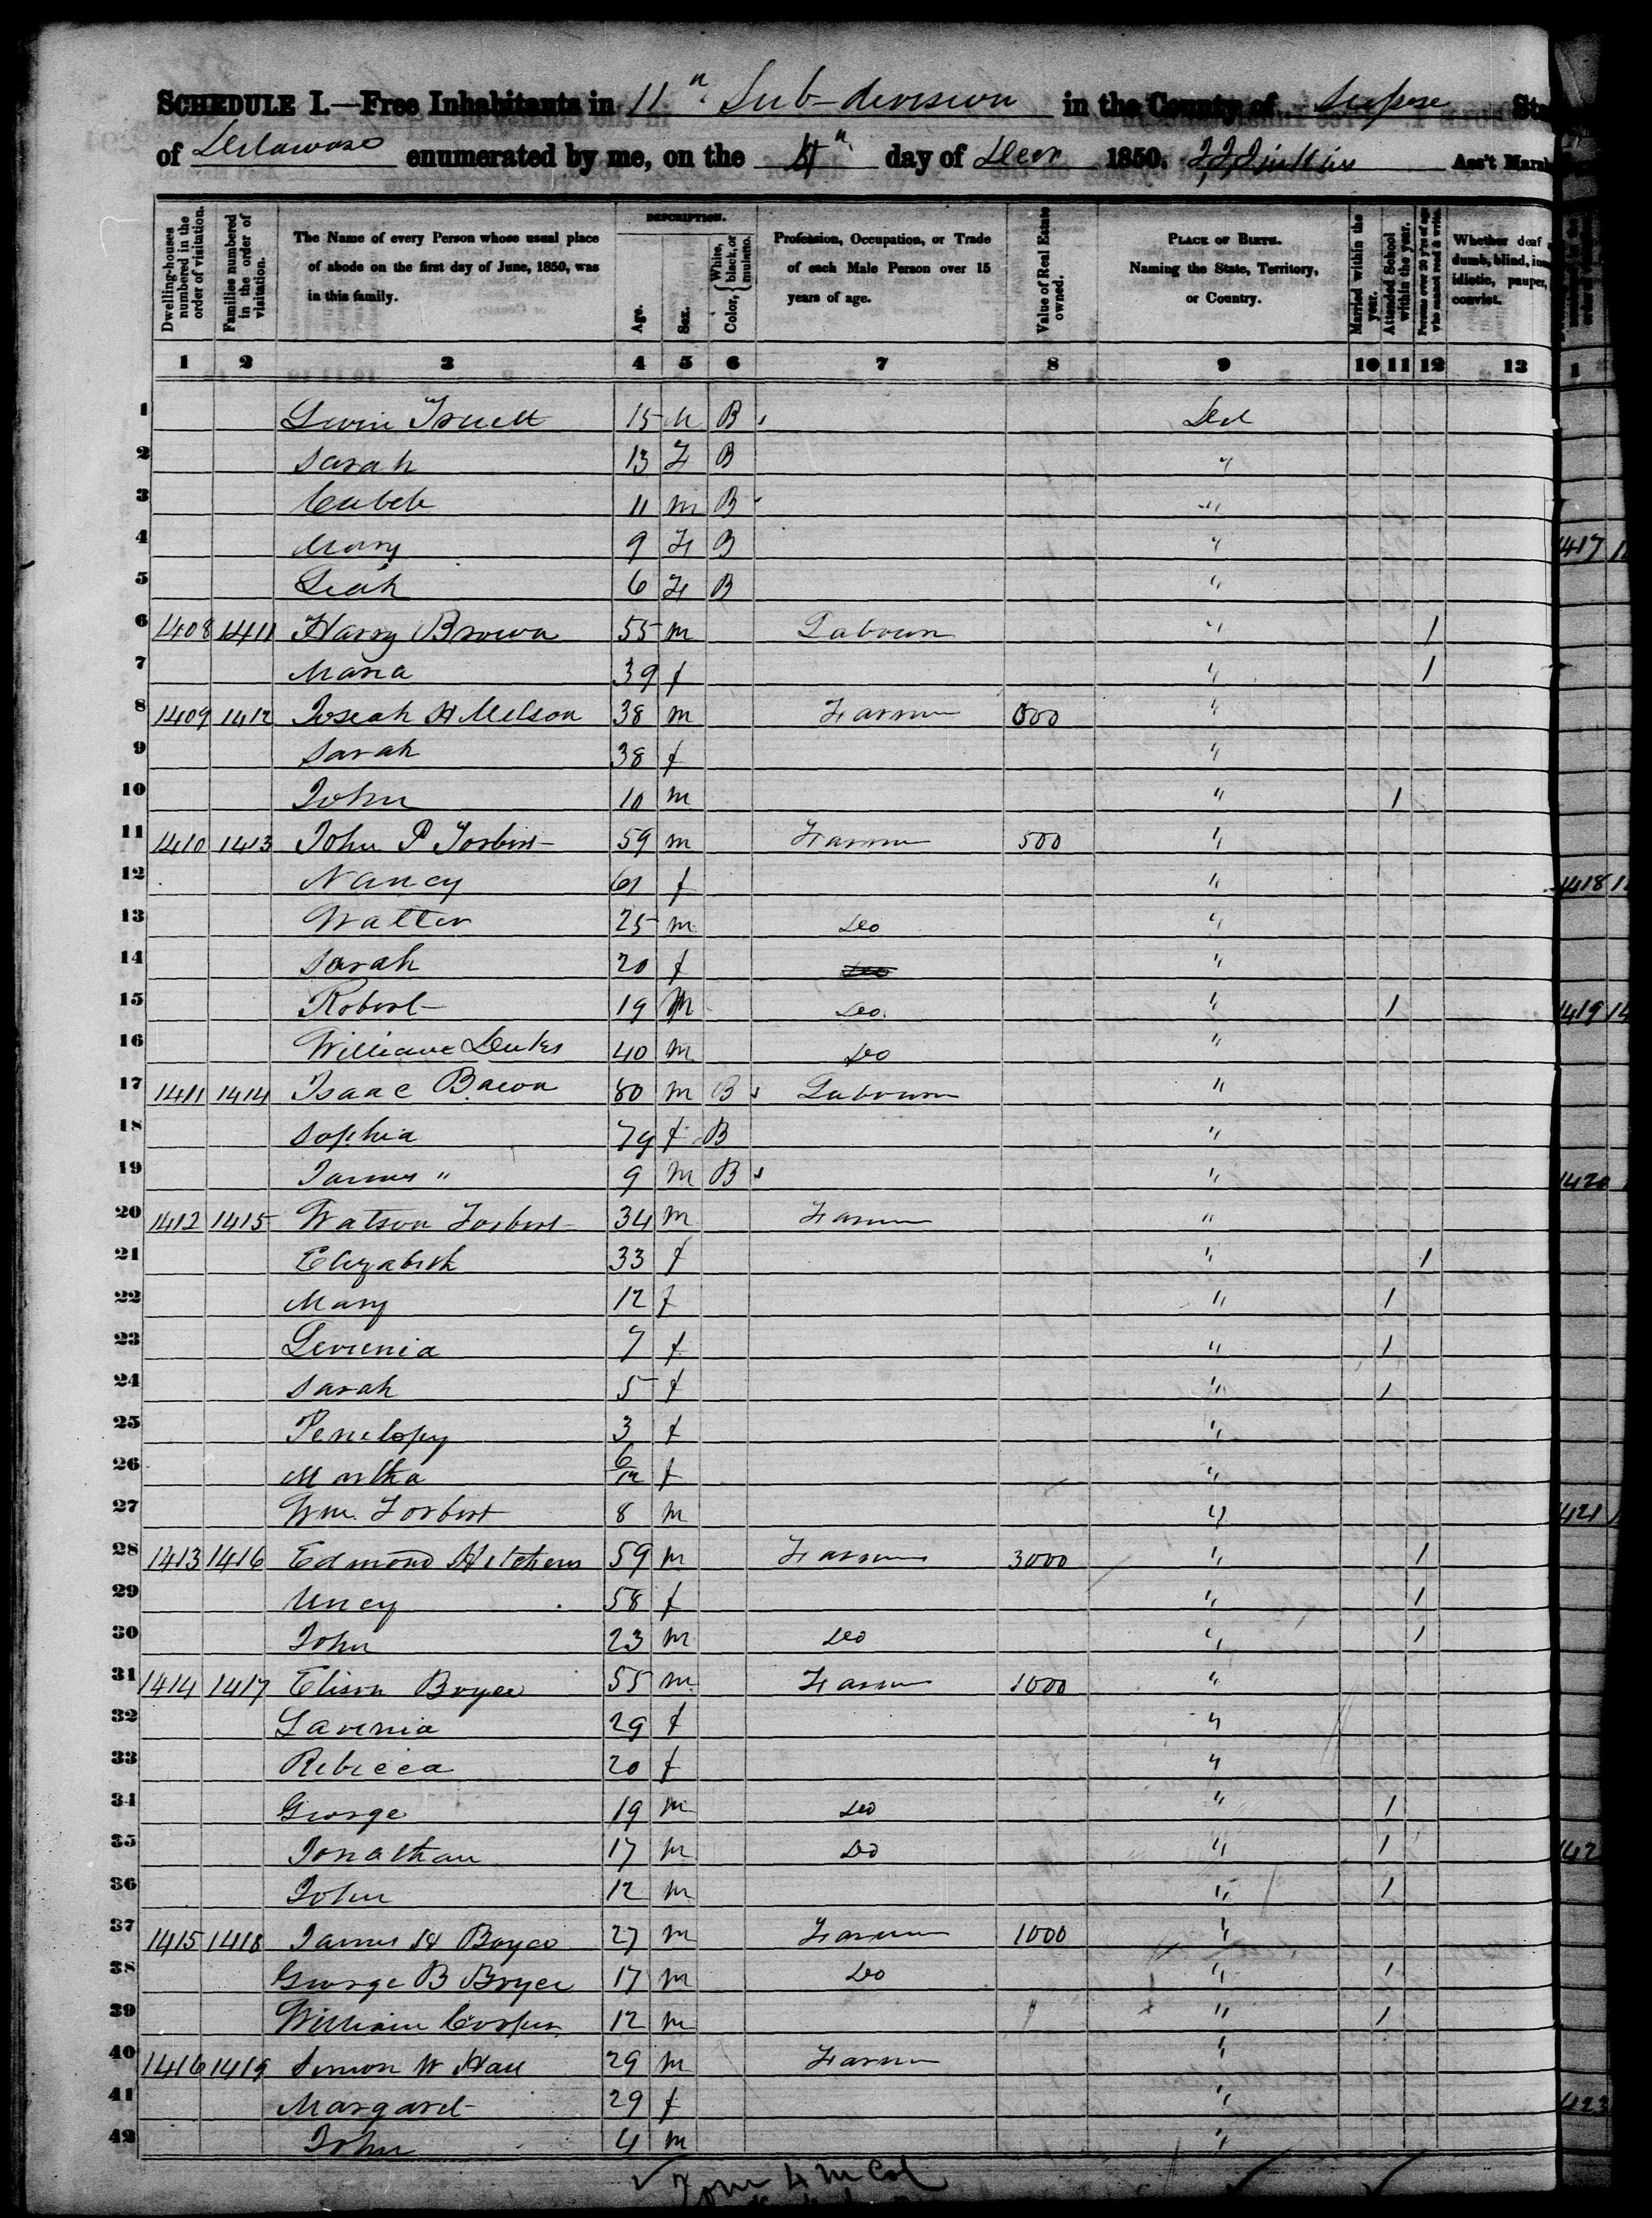 SCHEDULE I.—Free Inhabitants in 11th Sub-division in the County of Sussex Sta
of Delaware enumerated by me, on the 4th day of Decr 1850. Ass't Marsh
Dwelling-houses numbered in the order of visitation. Families numbered in the order of visitation. The Name of every Person whose usual place of abode on the first day of June, 1850, was in this family. DESCRIPTION. Age. Sex. Color, White, black, or mulatto. Profession, Occupation, or Trade of each Male Person over 15 years of age. Value of Real Estate owned. PLACE OF BIRTH. Naming the State, Territory, or Country. Married within the year. Attended School within the year. Persons over 20 y'rs of age who cannot read & write. Whether deaf dumb, blind, ins idiotic, pauper, convict.
1 2 3 4 5 6 7 8 9 10 11 12 13 1
1 Levin Truitt 15 M B Del
2 Sarah 13 F B "
3 11 m B "
4 Mary 9 F B " 1417
5 Leah 6 F B "
6 1408 1411 Harry Brown 55 m Labourer " 1
7 Maria 39 f " 1
8 1409 1412 Joseah H Melson 38 m Farmer "
9 Sarah 38 f "
10 John 10 m " 1
11 1410 1413 John P Torbert 59 m Farmer 500 "
12 Nancy 61 f " 1418
13 Walter 25 m Do "
14 Sarah 20 f Do "
15 Robert 19 m Do " 1 1419 14
16 William Dukes 40 m Do "
17 1411 1414 Isaac Bacon 80 m B Labourer "
18 Sophia 79 f B "
19 James " 9 m B " 1420
20 1412 1415 Watson Torbert 34 m Farmer "
21 Elizabeth 33 f " 1
22 Mary 12 f " 1
23 Levenia 7 f " 1
24 Sarah 5 f " 1
25 Penelopy 3 f "
26 Martha 6/12 f "
27 Wm. Torbert 8 m " 421
28 1413 1416 Edmond Hitchens 59 m Farmer 3000 " 1
29 58 f " 1
30 John 23 m Do " 1
31 1414 1417 Elison Boyce 55 m Farmer 1000 "
32 Lavenia 29 f "
33 Rebecca 20 f "
34 George 19 m Do " 1
35 Jonathan 17 m Do " 1 142
36 John 12 m " 1
37 1415 1418 James H Boyce 27 m Farmer 1000 "
38 George B Boyce 17 m Do " 1
39 William Cooper 12 m " 1
40 1416 1419 Simon W Hall 29 m Farmer "
41 Margaret 29 f " 423
42 John 4 m "
4 m Col